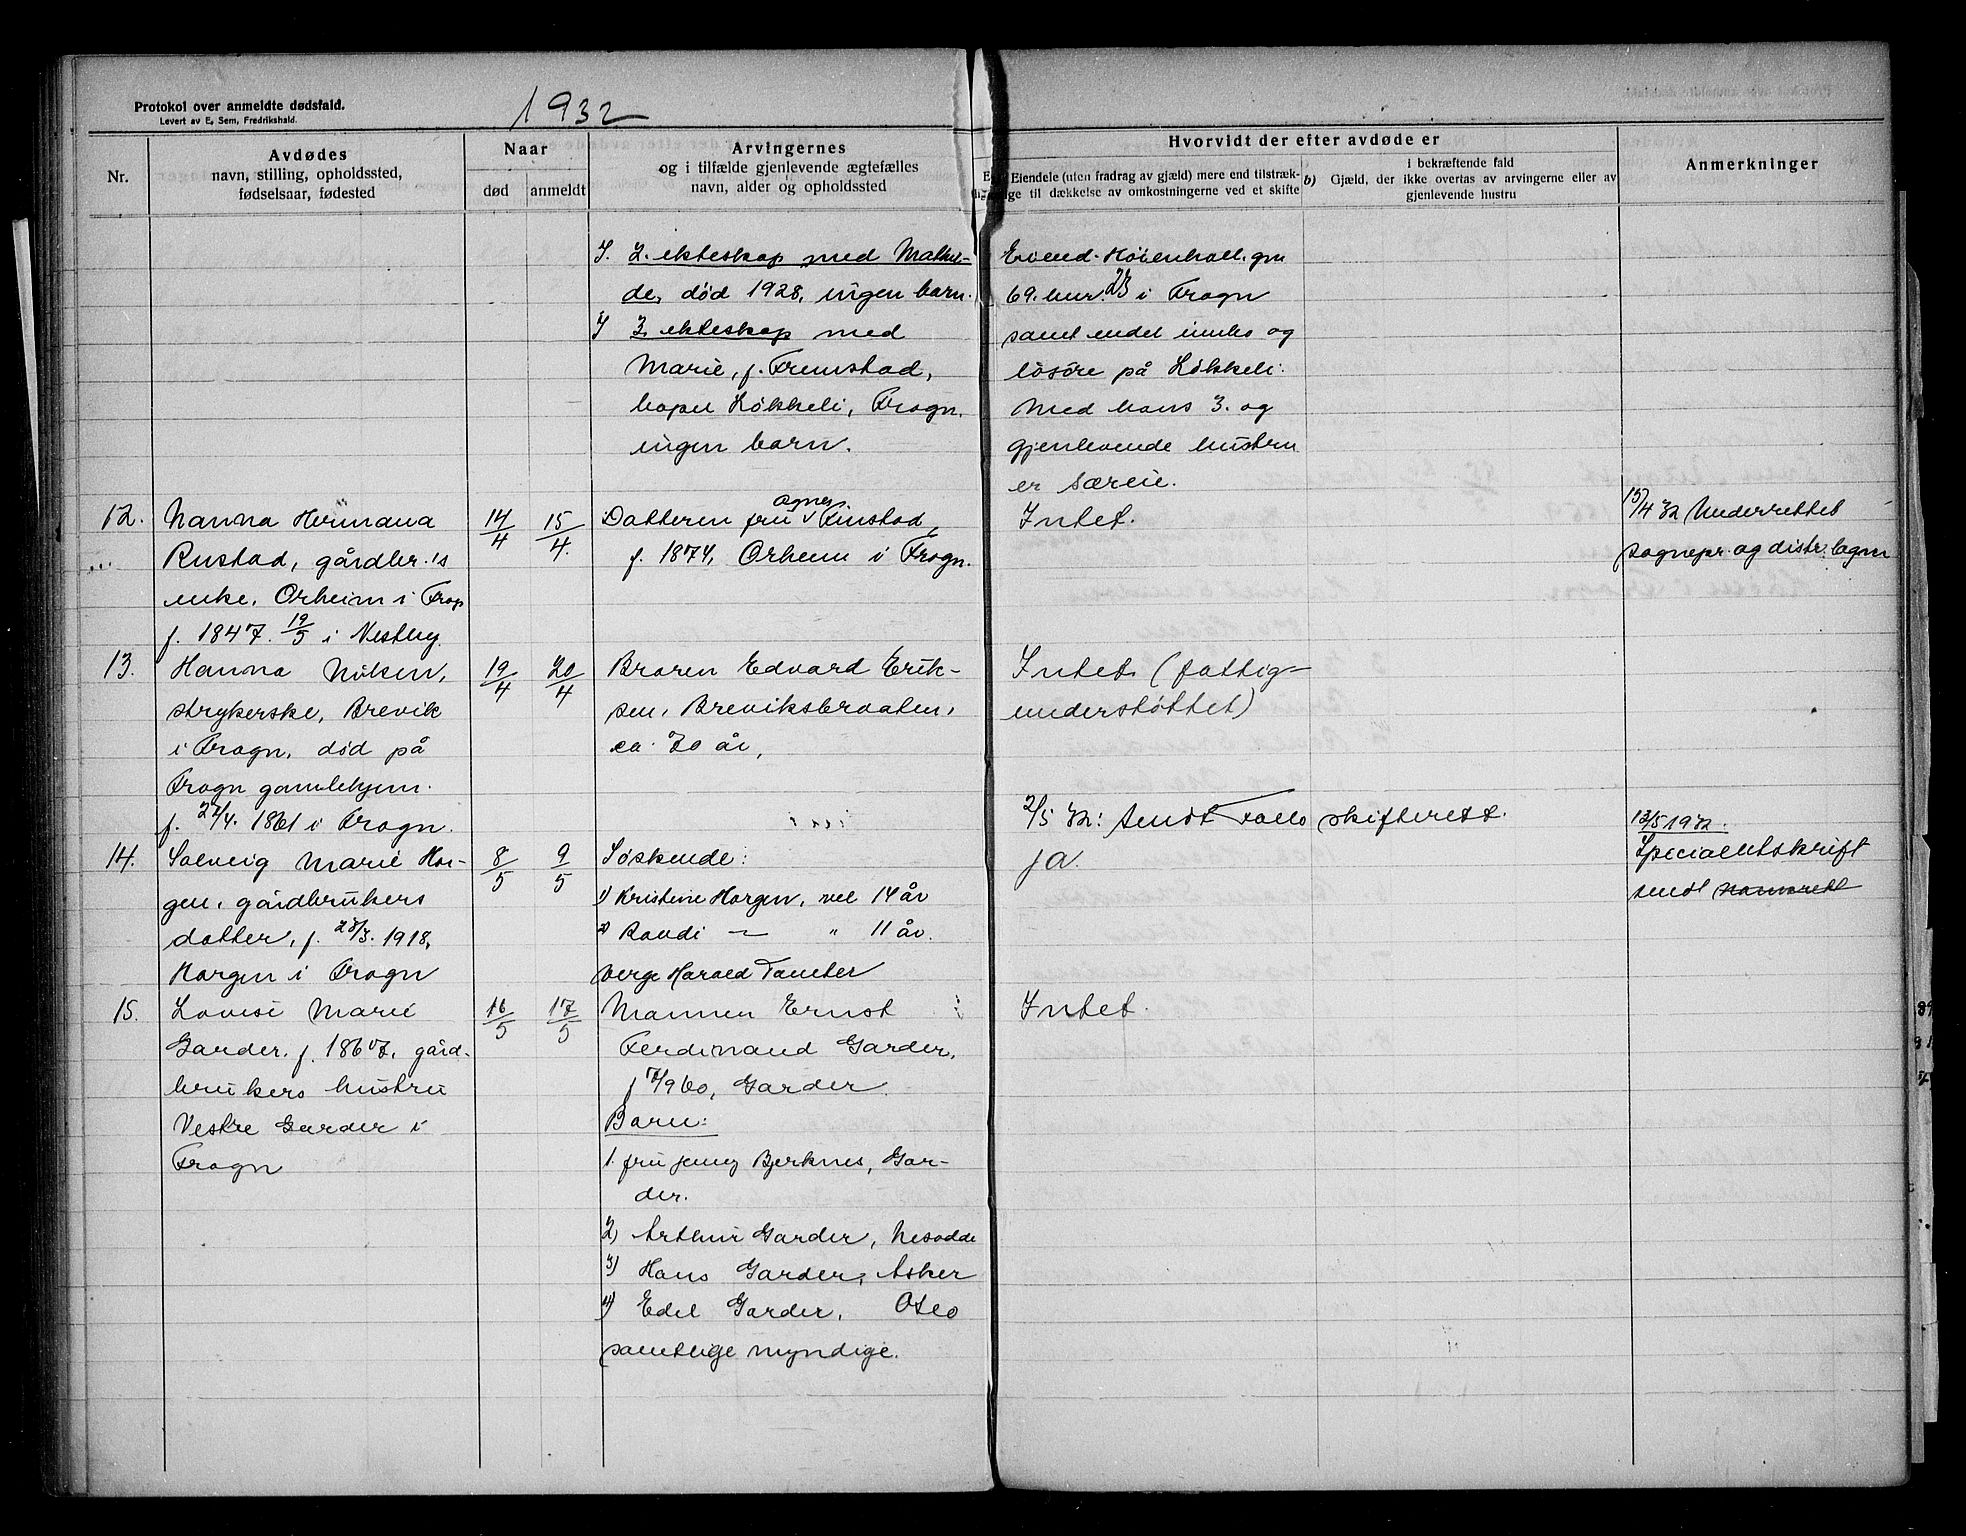 Protokol over anmeldte dødsfald.
Levert av E. Sem, Fredrikshald.
1932
Nr.
Avdødes
navn, stilling, opholdssted,
fødselsaar, fødested
Naar
død
anmeldt
Arvingernes
og i tilfælde gjenlevende ægtefælles
navn, alder og opholdssted
Hvorvidt der efter avdøde er
Eiendele (uten fradrag av gjæld) mere end tilstræk-
ge til dækkelse av omkostningerne ved et skifte
b) Gjæld, der
i bekræftende fald
ikke overtas av arvingerne eller av
gjenlevende hustru
Anmerkninger
2. ekteskap med Mathil-
de, død 1928, ingen barn.
3 ekteskap med
Marie, f. Fremstad,
bopel Løkkeli, Frogn.
ingen barn.
Eiend. Høienhall. gnr
69. bnr. 23 i Frogn
samt endel innbo og
løsøre på Løkkeli.
Med hans 3. og
gjenlevende hustru
er særeie.
12.
Nanna Hermana
Rustad, gårdbr.'s
enke, Orheim i Frogn
f. 1847. 19/5 i Vestby
14/4
15/4.
Datteren fru Agnes Finstad,
f. 1874, Orheim i Frogn.
Intet.
15/4 32 Underrettet
sognepr. og distr. legen
13.
Hanna Nilsen,
strykerske, Brevik
i Frogn, død på
Frogn gamlehjem.
f. 22/4. 1861 i Frogn.
19/4
20/4
Broren Edvard Erik-
sen, Breviksbraaten,
ca. 70 år,
Intet. (fattig-
understøttet)
2/5 32: Sendt Follo skifterett.
14.
Solveig Marie Hor-
gen, gårdbrukers
datter, f. 28/3. 1918,
Horgen i Frogn
8/5
9/5
Søskende:
1) Kristine Horgen, vel 14 år
2) Randi — " 11 år.
verge Harald Tamber
ja.
13/5 1932.
Specialutskrift
sendt
15.
Lovise Marie
Garder. f. 1867, gård-
brukers hustru
Vestre Garder i
Frogn
16/5
17/5
Mannen Ernst
Ferdinand Garder,
f 17/9 60, Garder.
Barn:
1. fru Jenny Bjerknes, Gar-
der.
2) Arthur Garder, Nesodde
3) Hans Garder, Asker
4) Edel Garder, Oslo
samtlige myndige.
Intet.